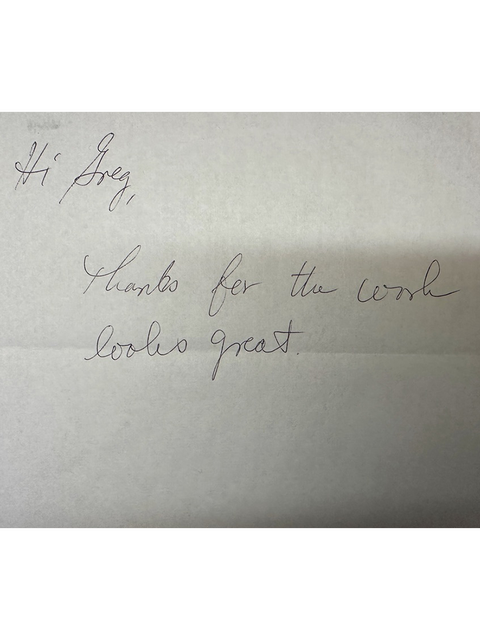 Hi Greg,
Thanks for the work
looks great.